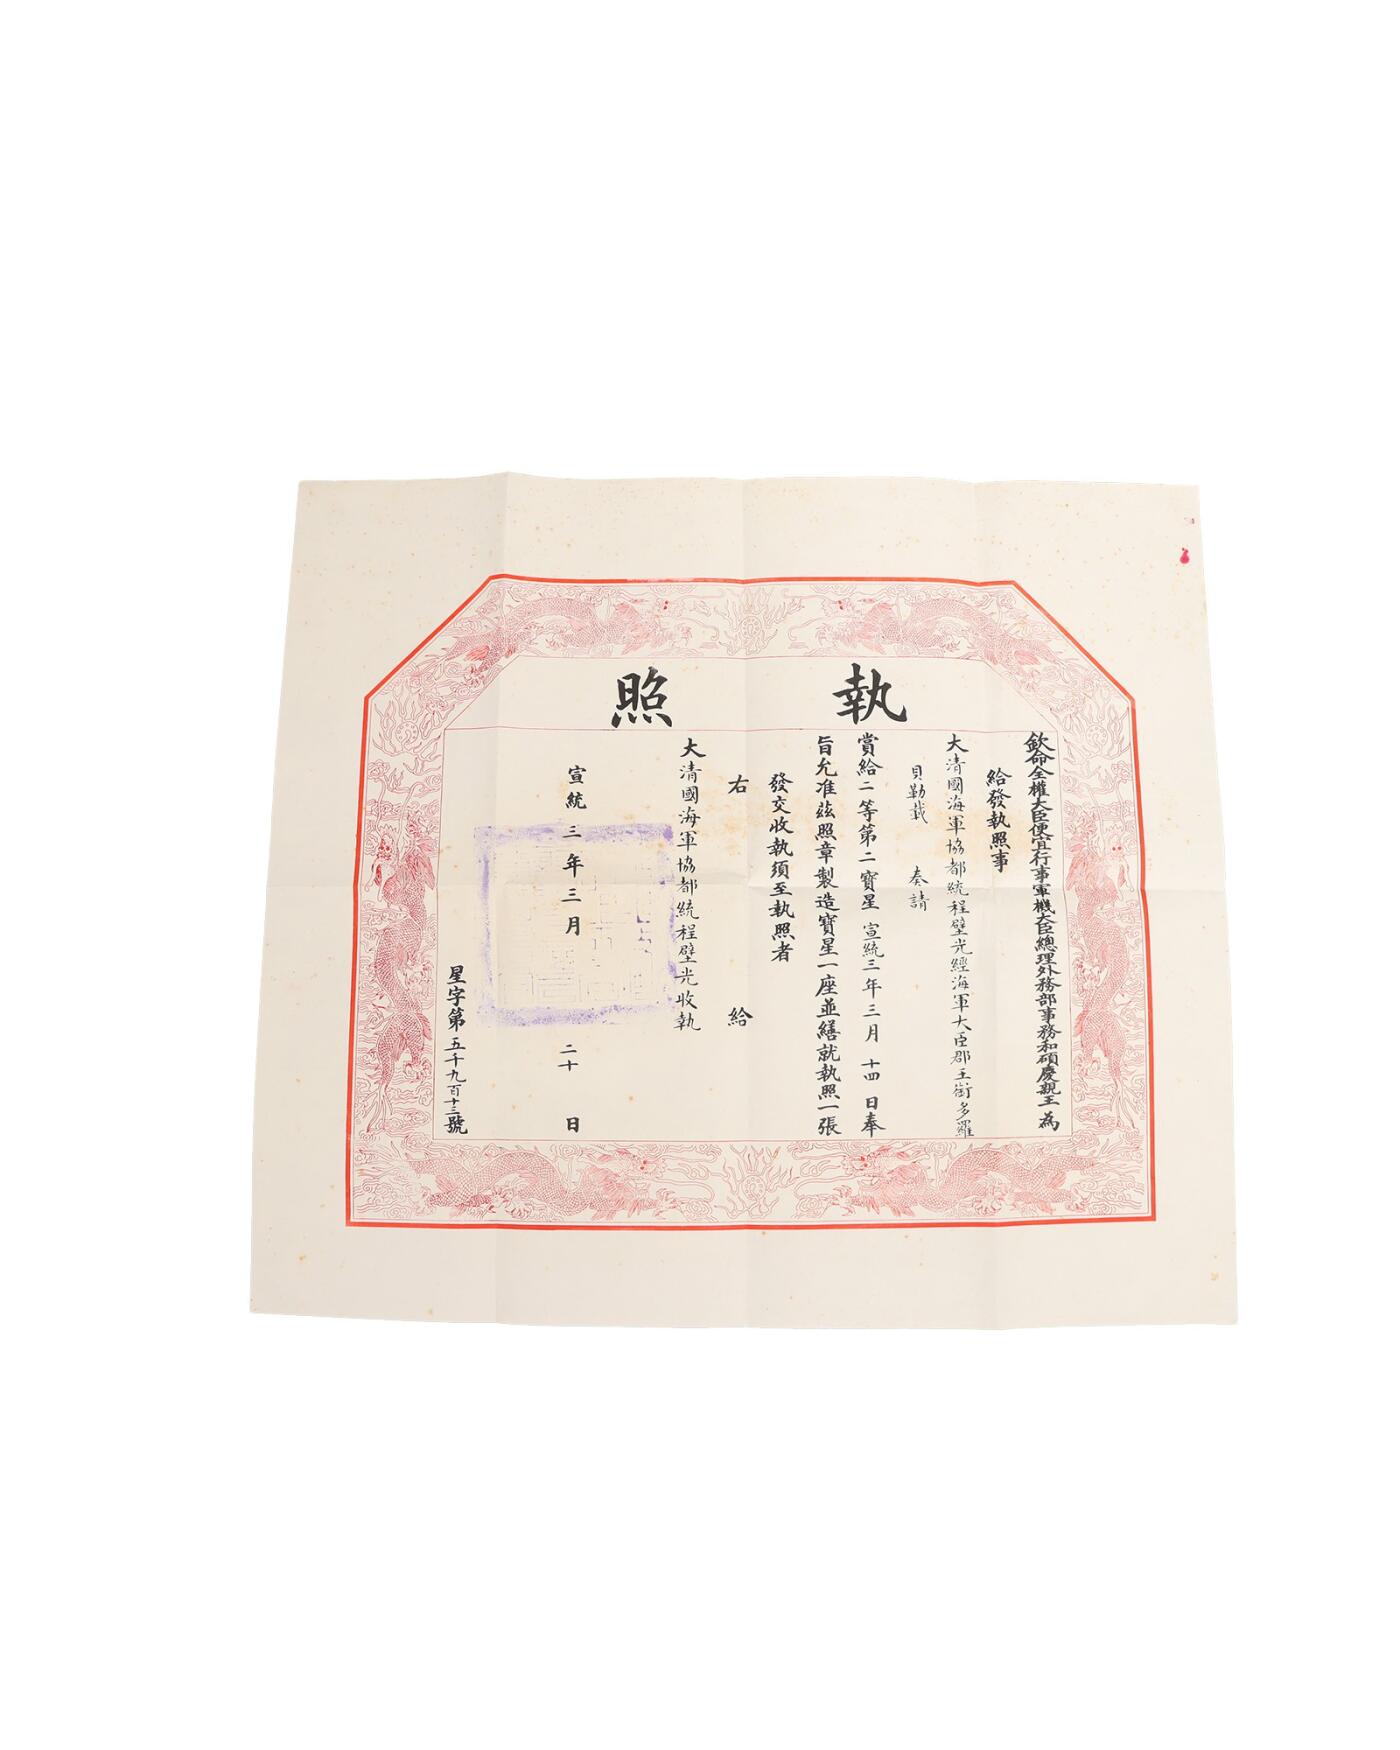 執照
欽命全權大臣便宜行事軍機大臣總理外務部事務和碩慶親王 為
給發執照事
大清國海軍協都統程璧光經海軍大臣郡王銜多羅
貝勒載 奏請
賞給二等第二寶星 宣統三年三月十四日奉
旨允准茲照章製造寶星一座並繕就執照一張
發交收執須至執照者
右 給
大清國海軍協都統程璧光收執
宣統三年三月二十日
星字第五千九百十三號